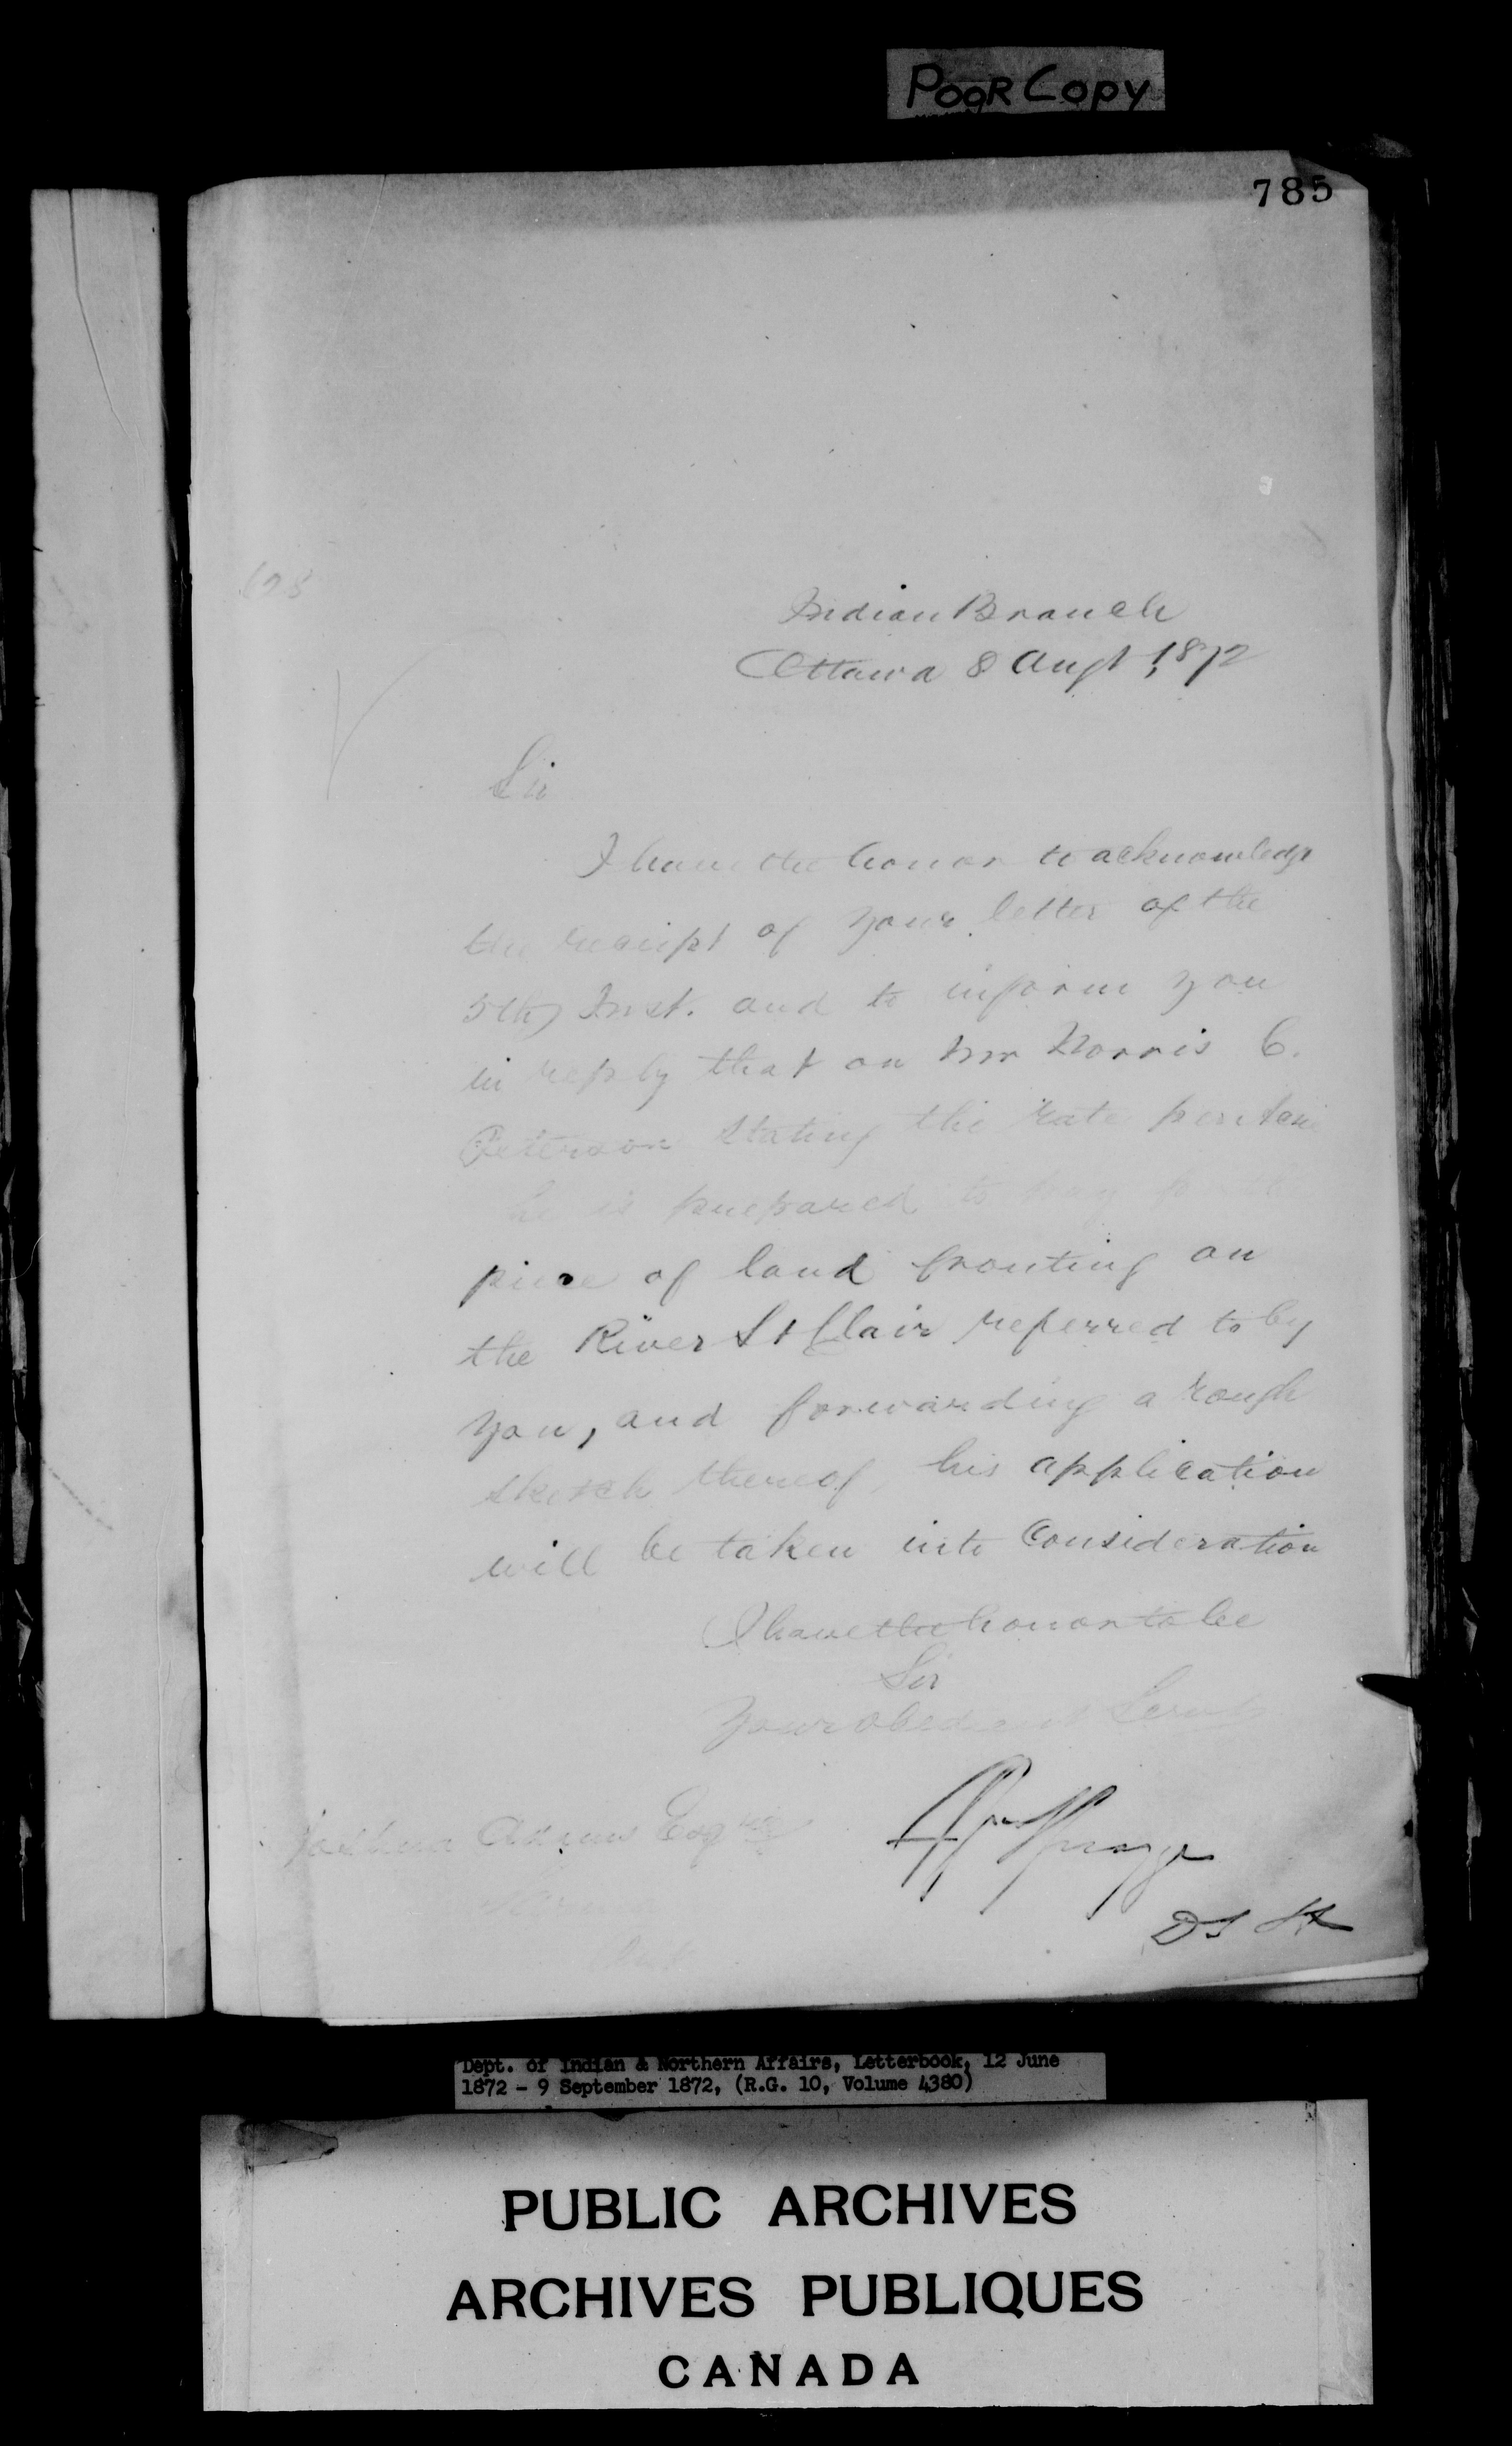 POOR COPY
785
Indian Branch
Ottawa 8 Augt 1872
Sir
I have the honor to acknowledge
the receipt of your letter of the
5th Inst. and to inform you
in reply that on Mr Norris C.
Peterson stating the rate per
he is prepared to pay
piece of land fronting on
the River St Clair referred to by
you, and forwarding a rough
sketch thereof, his application
will be taken into Consideration
I have the honor to be
Sir
Your obedient Servt
Joshua Adams Esqre
Spragge
D S
Dept. of Indian & Northern Affairs, Letterbook, 12 June
1872 - 9 September 1872, (R.G. 10, Volume 4380)
PUBLIC ARCHIVES
ARCHIVES PUBLIQUES
CANADA